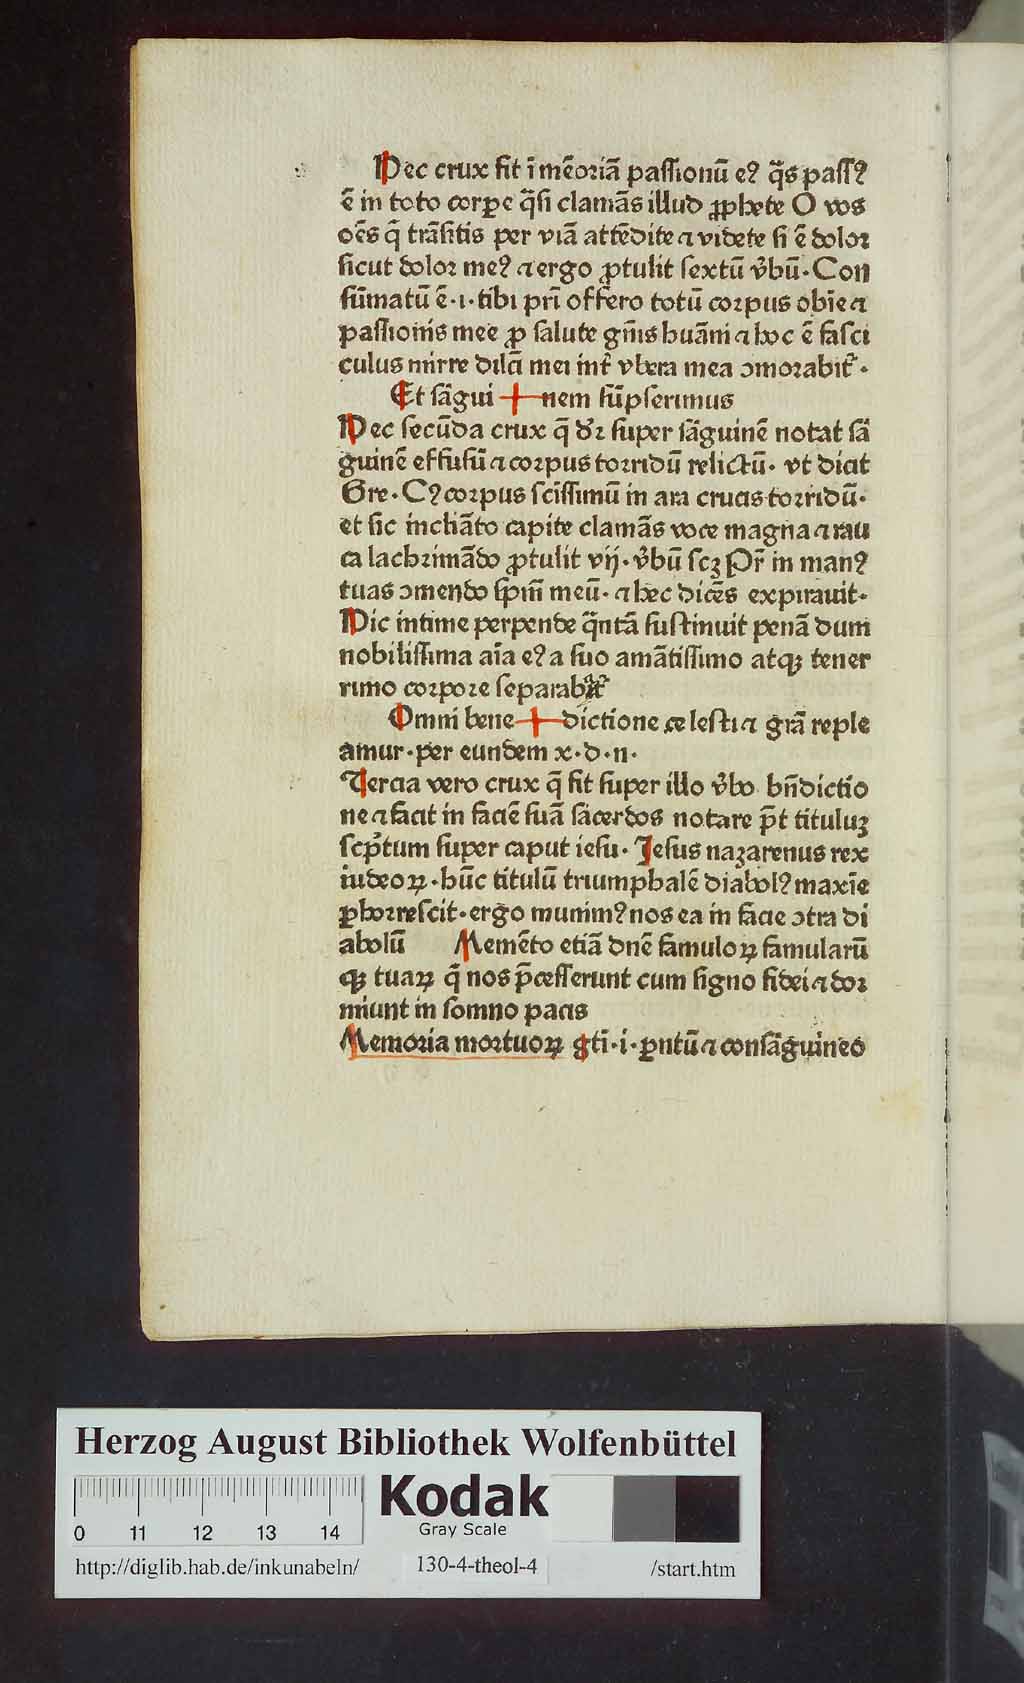 Hec crux fit ī mēoriā passionū eꝰ q̄s passꝰ
ē in toto corꝑe q̄si clamās illud ꝓphete O vos
oēs q̄ trāsitis per viā attēdite ⁊ videte si ē dolor
sicut dolor meꝰ ⁊ ergo ꝓtulit sextū v̄bū · Con
sūmatū ē · i · tibi pr̄i offero totū corpus obīe ⁊
passionis mee ꝓ salute gn̄is huāni ⁊ hoc ē fasci
culus mirre dilc̄i mei int̄ vbera mea ꝯmorabit᷑ ·
Et sāgui + nem sūpserimus
Hec secūda crux q̄ dꝛ super sāguinē notat sā
guinē effusū ⁊ corpus torridū relictū · vt dicit
Gre · Cꝰ corpus scīssimū in ara crucis torridū ·
et sic incliāto capite clamās voce magna ⁊ rau
ca lachrimādo ꝓtulit vij · v̄bū scꝫ Pr̄ in manꝰ
tuas ꝯmendo spm̄ meū · ⁊ hec dicēs expirauit ·
Hic intime perpende q̄ntā sustinuit penā dum
nobilissima aīa eꝰ a suo amātissimo atqꝫ tener
rimo corpore separabat᷑
Omni bene + dictione celesti ⁊ grā reple
amur · per eundem x · d · n ·
Tercia vero crux q̄ fit super illo v̄bo bn̄dictio
ne ⁊ facit in faciē suā sacerdos notare pt̄ tituluꝫ
scp̄tum super caput iesu · Jesus nazarenus rex
iudeoꝝ · hūc titulū triumphalē diabolꝰ maxīe
ꝑhorrescit · ergo munimꝰ nos ea in facie ꝯtra di
abolū Memēto etiā dn̄e famuloꝝ famularū
qꝫ tuaꝝ q̄ nos p̄cesserunt cum signo fidei ⁊ dor
miunt in somno pacis
Memoria mortuoꝝ gti̅ · i · ꝑntū ⁊ consāguineo
Herzog August Bibliothek Wolfenbüttel
Kodak
Gray Scale
0 11 12 13 14
http://diglib.hab.de/inkunabeln/ 130-4-theol-4 /start.htm